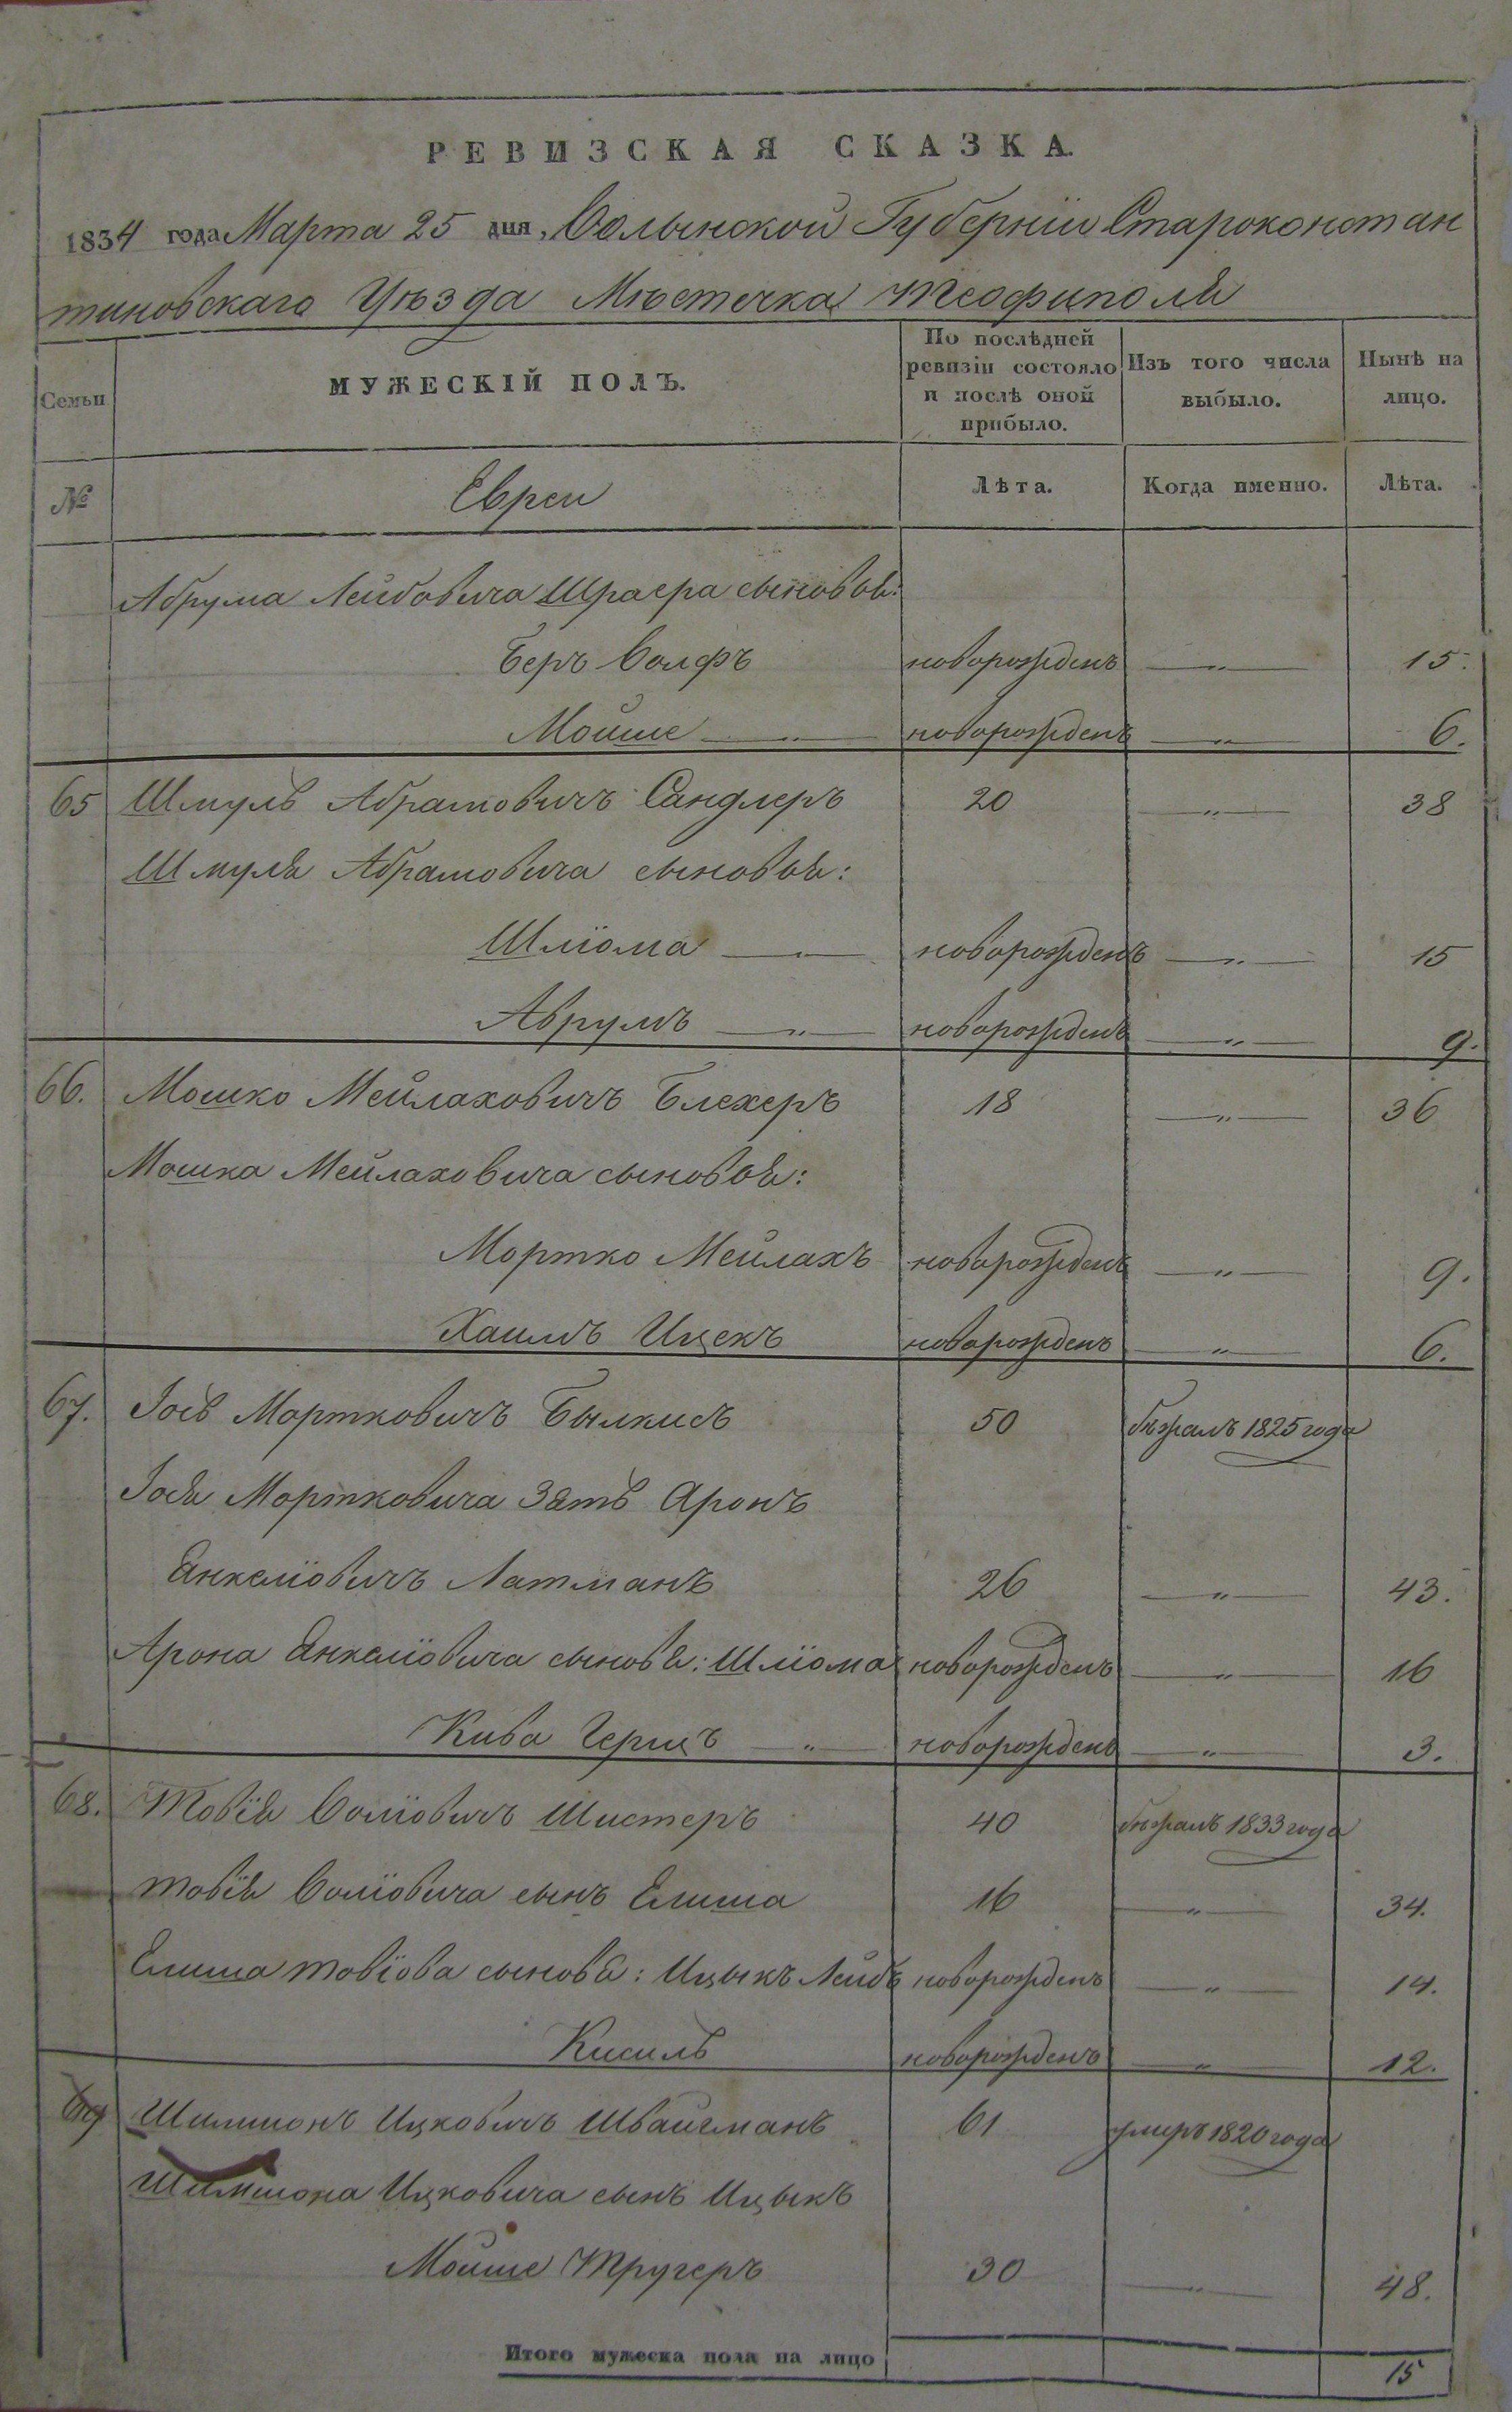 РЕВИЗСКАЯ СКАЗКА.
1834 года Марта 25 дня, Волынской Губернїи Староконстан
тиновскаго Уѣзда Мѣстечка Теофиполя
Семьи
МУЖЕСКІЙ ПОЛЪ.
По послѣдней ревизіи состояло и послѣ оной прибыло.
Изъ того числа выбыло.
Нынѣ на лицо.
№ Евреи Лѣта. Когда именно. Лѣта.
Абрума Лейбовича Шраера сыновья:
Беръ Волфъ новорожденъ —„— 15.
Мойше —„— новорожденъ —„— 6.
65 Шмуль Абрамовичъ Сандлеръ 20 —„— 38
Шмуля Абрамовича сыновья:
Шлїома —„— новорожденъ —„— 15
Аврумъ —„— новорожденъ —„— 9.
66. Мошко Мейлаховичъ Блехеръ 18 —„— 36
Мошка Мейлаховича сыновья:
Мортко Мейлахъ новорожденъ —„— 9.
Хаимъ Ицекъ новорожденъ —„— 6.
67. Іось Мортковичъ Былкисъ 50 бѣжалъ 1825 года
Іося Мортковича Зять Аронъ
Янкелїовичъ Латманъ 26 —„— 43.
Арона Янкелїовича сыновя: Шлїома новорожденъ —„— 16
Кива Герцъ —„— новорожденъ —„— 3.
68. ТовїяВолїовичъ Шистеръ 40 бѣжалъ 1833 года
Товїя Волїовича сынъ Елиша 16 —„— 34.
Елиша Товїова сыновя: Ицыкъ Лейбъ новорожденъ —„— 14.
Кисиль новорожденъ —„— 12.
69 Шимшонъ Ицковичъ Швайгманъ 61 умеръ 1820 года
Шимшона Ицковича сынъ Ицыкъ
Мойше Тругеръ 30 —„— 48.
Итого мужеска пола на лицо 15